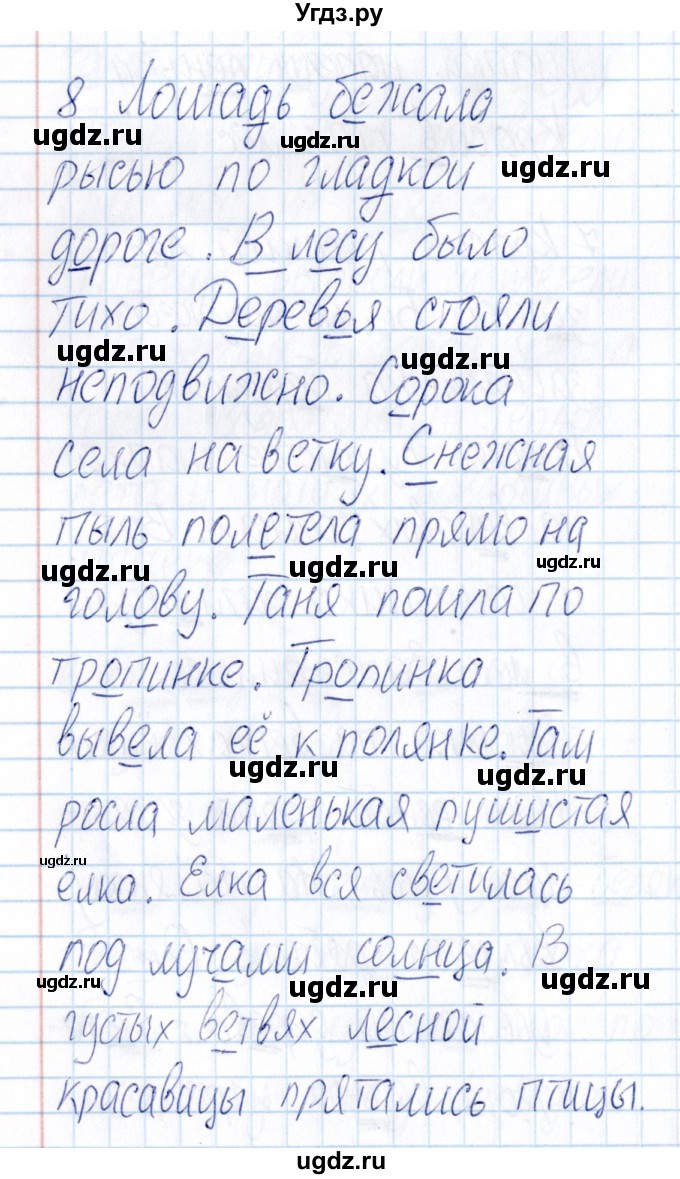 Угдз.ру
8 Лошадь бежала
ugdz.ru ugdz.ru ugdz.ru
рысью по гладкой
дороге. В лесу было
тихо. Деревья стояли
ugdz.ru ugdz.ru
неподвижно. Сорока
села на ветку. Снежная
пыль полетела прямо на
ugdz.ru ugdz.ru ugdz.ru
голову. Таня пошла по
тропинке. Тропинка
вывела её к полянке. Там
ugdz.ru ugdz.ru
росла маленькая пушистая
ugdz.ru
елка. Елка вся светилась
под лучами солнца. В
ugdz.ru ugdz.ru ugdz.ru
густых ветвях лесной
красавицы прятались птицы.
ugdz.ru